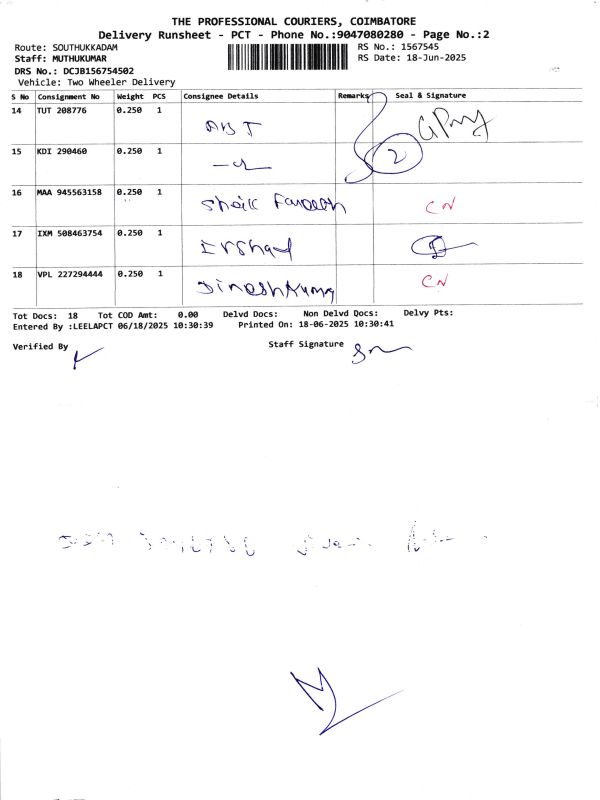 THE PROFESSIONAL COURIERS, COIMBATORE
Delivery Runsheet - PCT - Phone No.:9047080280 - Page No.:2
Route: SOUTHUKKADAM RS No.: 1567545
Staff: MUTHUKUMAR RS Date: 18-Jun-2025
DRS No.: DCJB156754502
Vehicle: Two Wheeler Delivery
S No Consignment No Weight PCS Consignee Details Remarks Seal & Signature
14 TUT 208776 0.250 1 ABT
15 KDI 290460 0.250 1 2
16 MAA 945563158 0.250 1 Sheik CN
17 IXM 508463754 0.250 1 Irshad
18 VPL 227294444 0.250 1 Dineshkumar CN
Tot Docs: 18 Tot COD Amt: 0.00 Delvd Docs: Non Delvd Docs: Delvy Pts:
Entered By :LEELAPCT 06/18/2025 10:30:39 Printed On: 18-06-2025 10:30:41
Verified By Staff Signature